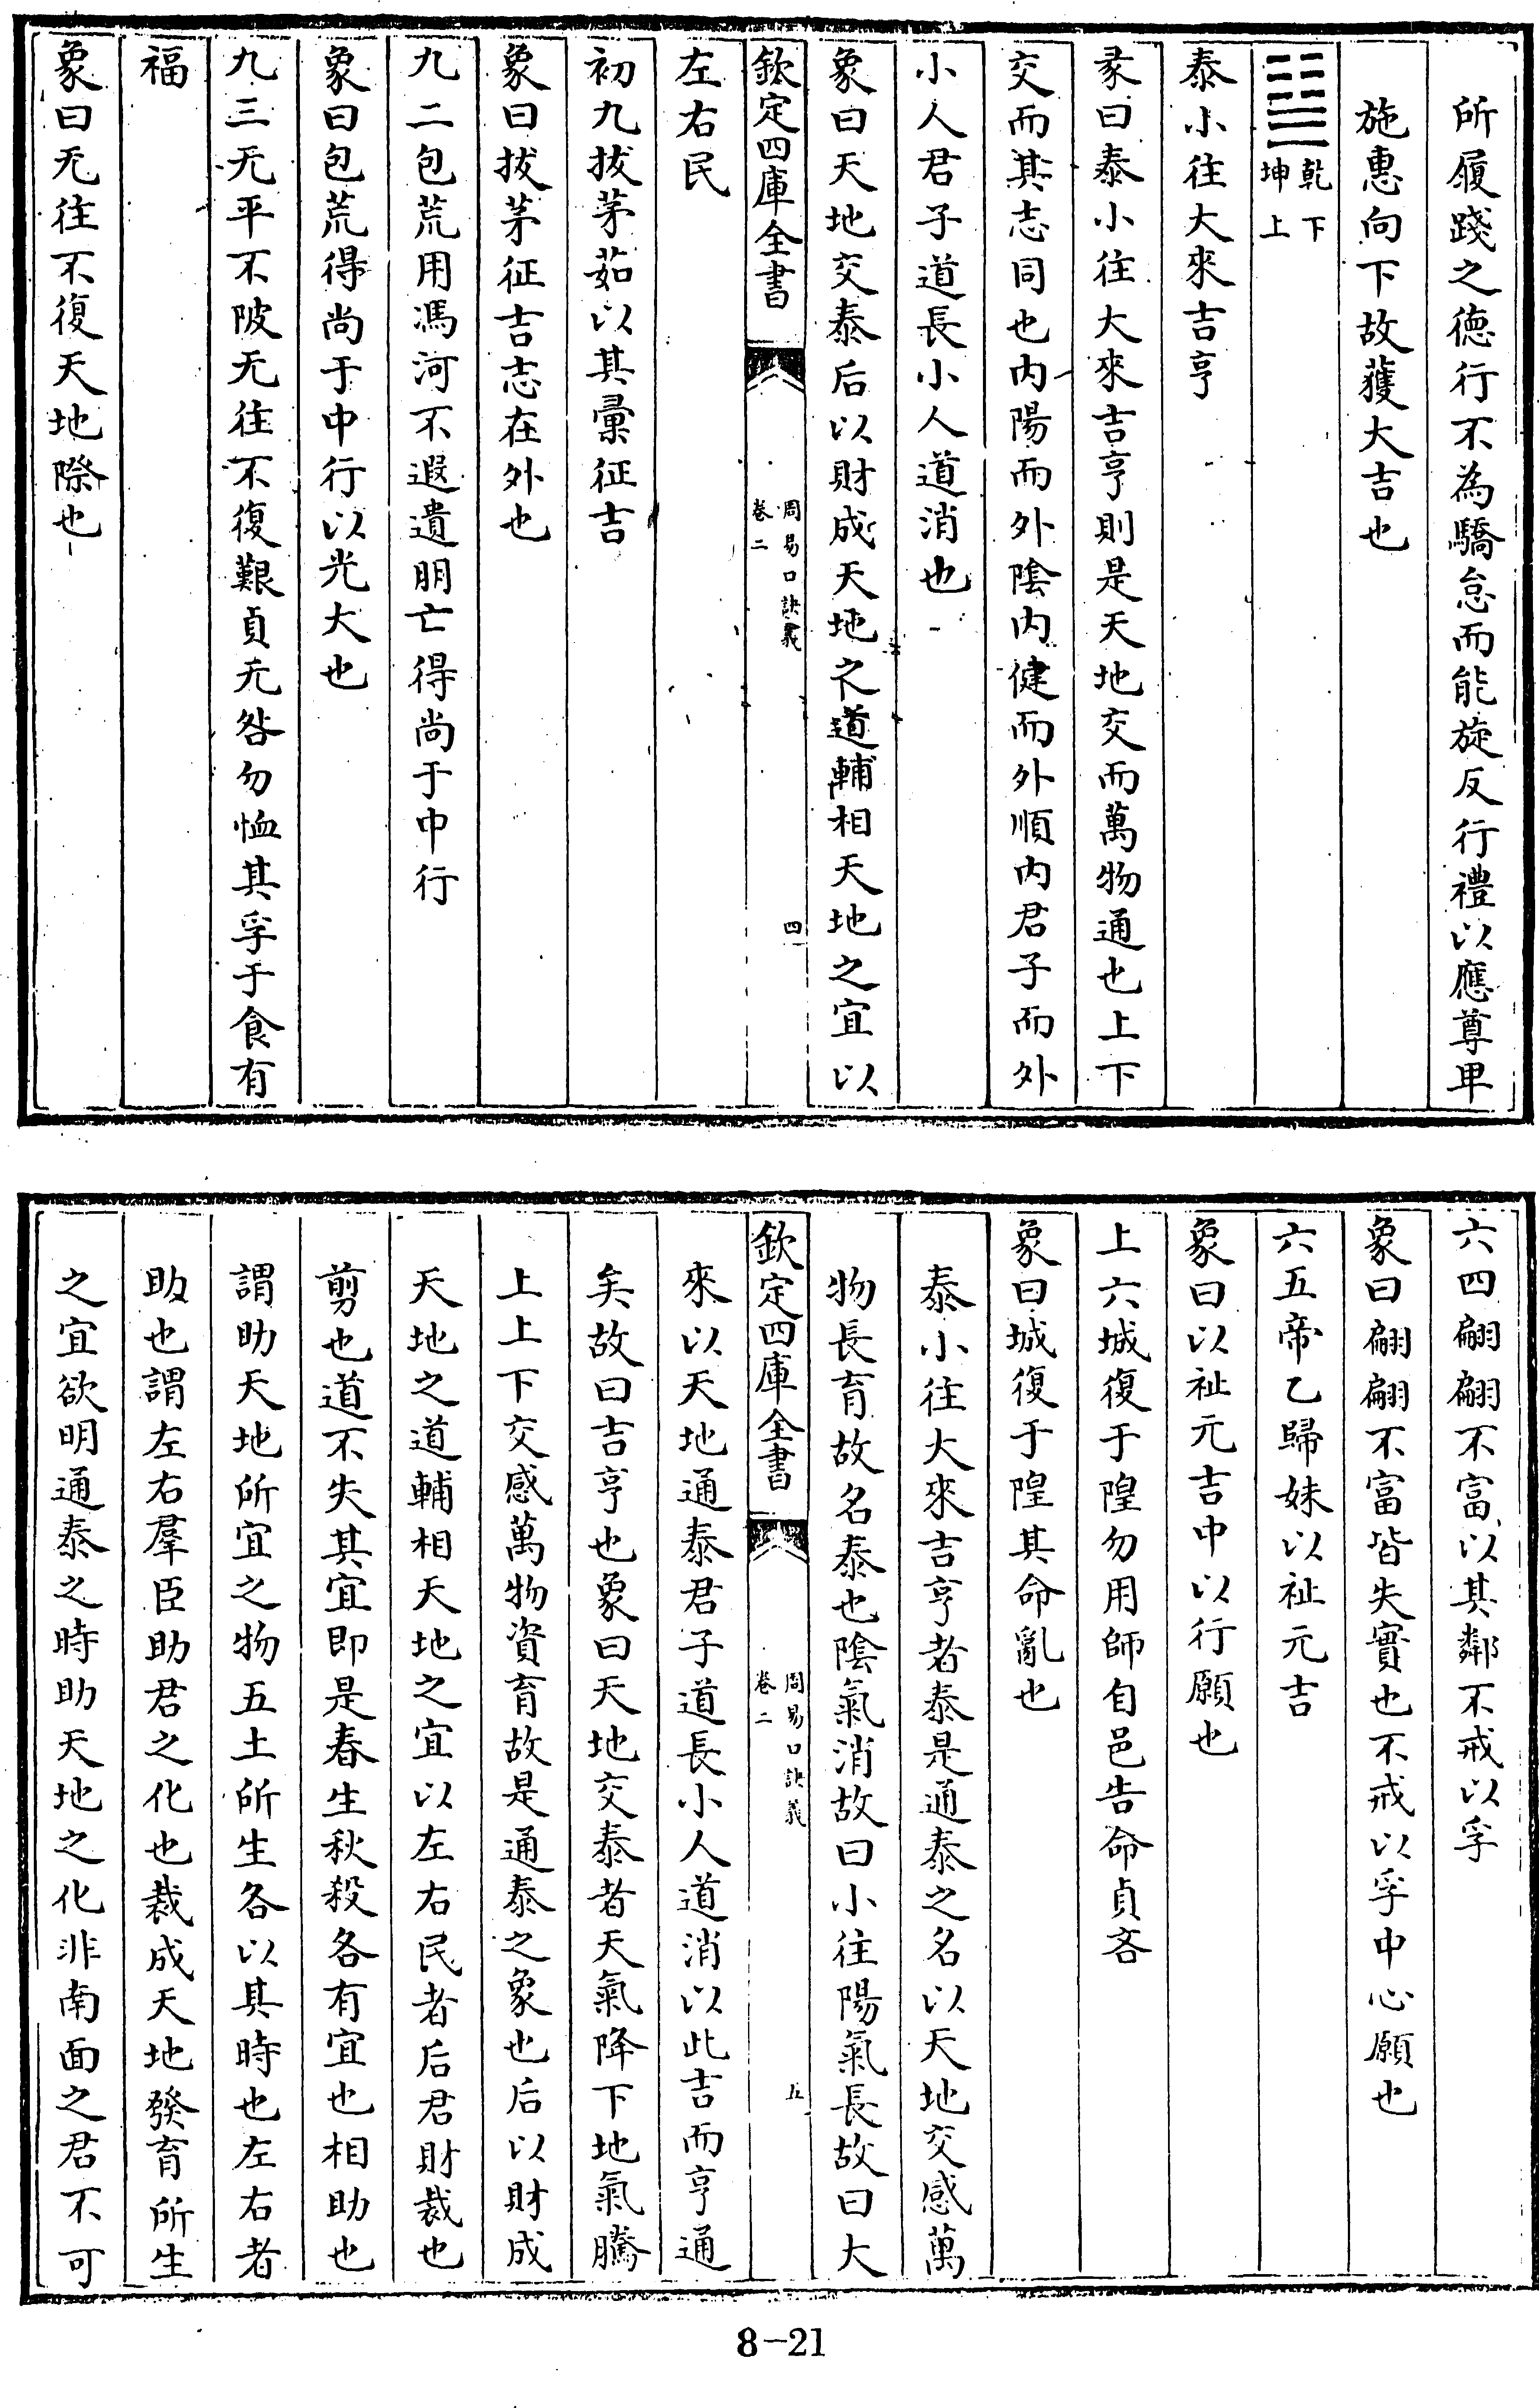 所履踐之德行不為驕怠而能旋反行禮以應尊卑
施惠向下故獲大吉也
乾下
坤上
泰小往大來吉亨
彖曰泰小往大來吉亨則是天地交而萬物通也上下
交而其志同也内陽而外隂内健而外順内君子而外
小人君子道長小人道消也
象曰天地交泰后以財成天地之道輔相天地之宜以
欽定四庫全書
周易口訣義
卷二
四
左右民
初九拔茅茹以其彚征吉
象曰拔茅征吉志在外也
九二包荒用馮河不遐遺朋亡得尚于中行
象曰包荒得尚于中行以光大也
九三无平不陂无往不復艱貞无咎勿恤其孚于食有
福
象曰无往不復天地際也
六四翩翩不富以其鄰不戒以孚
象曰翩翩不富皆失實也不戒以孚中心願也
六五帝乙歸妹以祉元吉
象曰以祉元吉中以行願也
上六城復于隍勿用師自邑告命貞吝
象曰城復于隍其命亂也
泰小往大來吉亨者泰是通泰之名以天地交感萬
物長育故名泰也隂氣消故曰小往陽氣長故曰大
欽定四庫全書
周易口訣義
卷二
五
來以天地通泰君子道長小人道消以此吉而亨通
矣故曰吉亨也象曰天地交泰者天氣降下地氣騰
上上下交感萬物資育故是通泰之象也后以財成
天地之道輔相天地之宜以左右民者后君財裁也
剪也道不失其宜即是春生秋殺各有宜也相助也
謂助天地所宜之物五土所生各以其時也左右者
助也謂左右羣臣助君之化也裁成天地發育所生
之宜欲明通泰之時助天地之化非南面之君不可
8-21